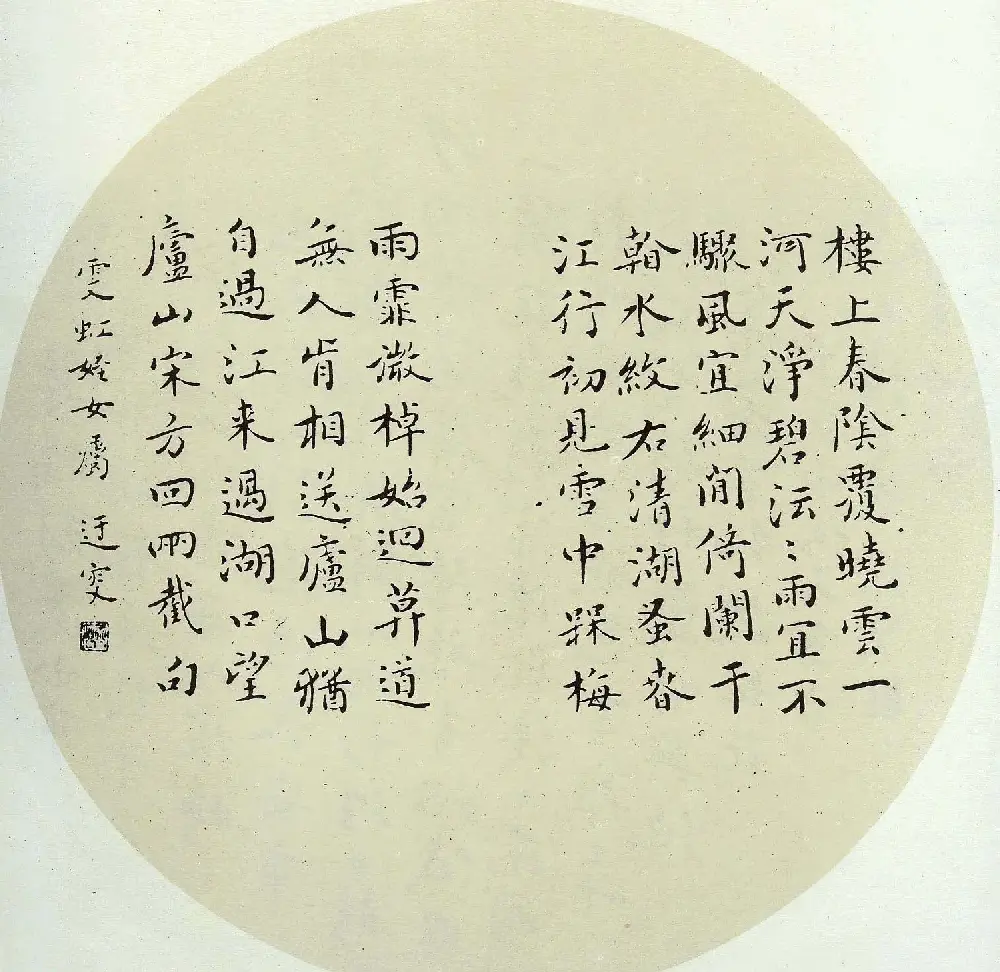 樓上春陰覆曉雲一
河天淨碧沄〻雨宜不
驟風宜細閒倚闌干
水紋右清湖蚤春
江行初見雪中槑梅
雨霏微棹始迴莫道
無人肯相送廬山猶
自過江来過湖口望
廬山宋方回兩截句
雯虹姪女屬 迂叜